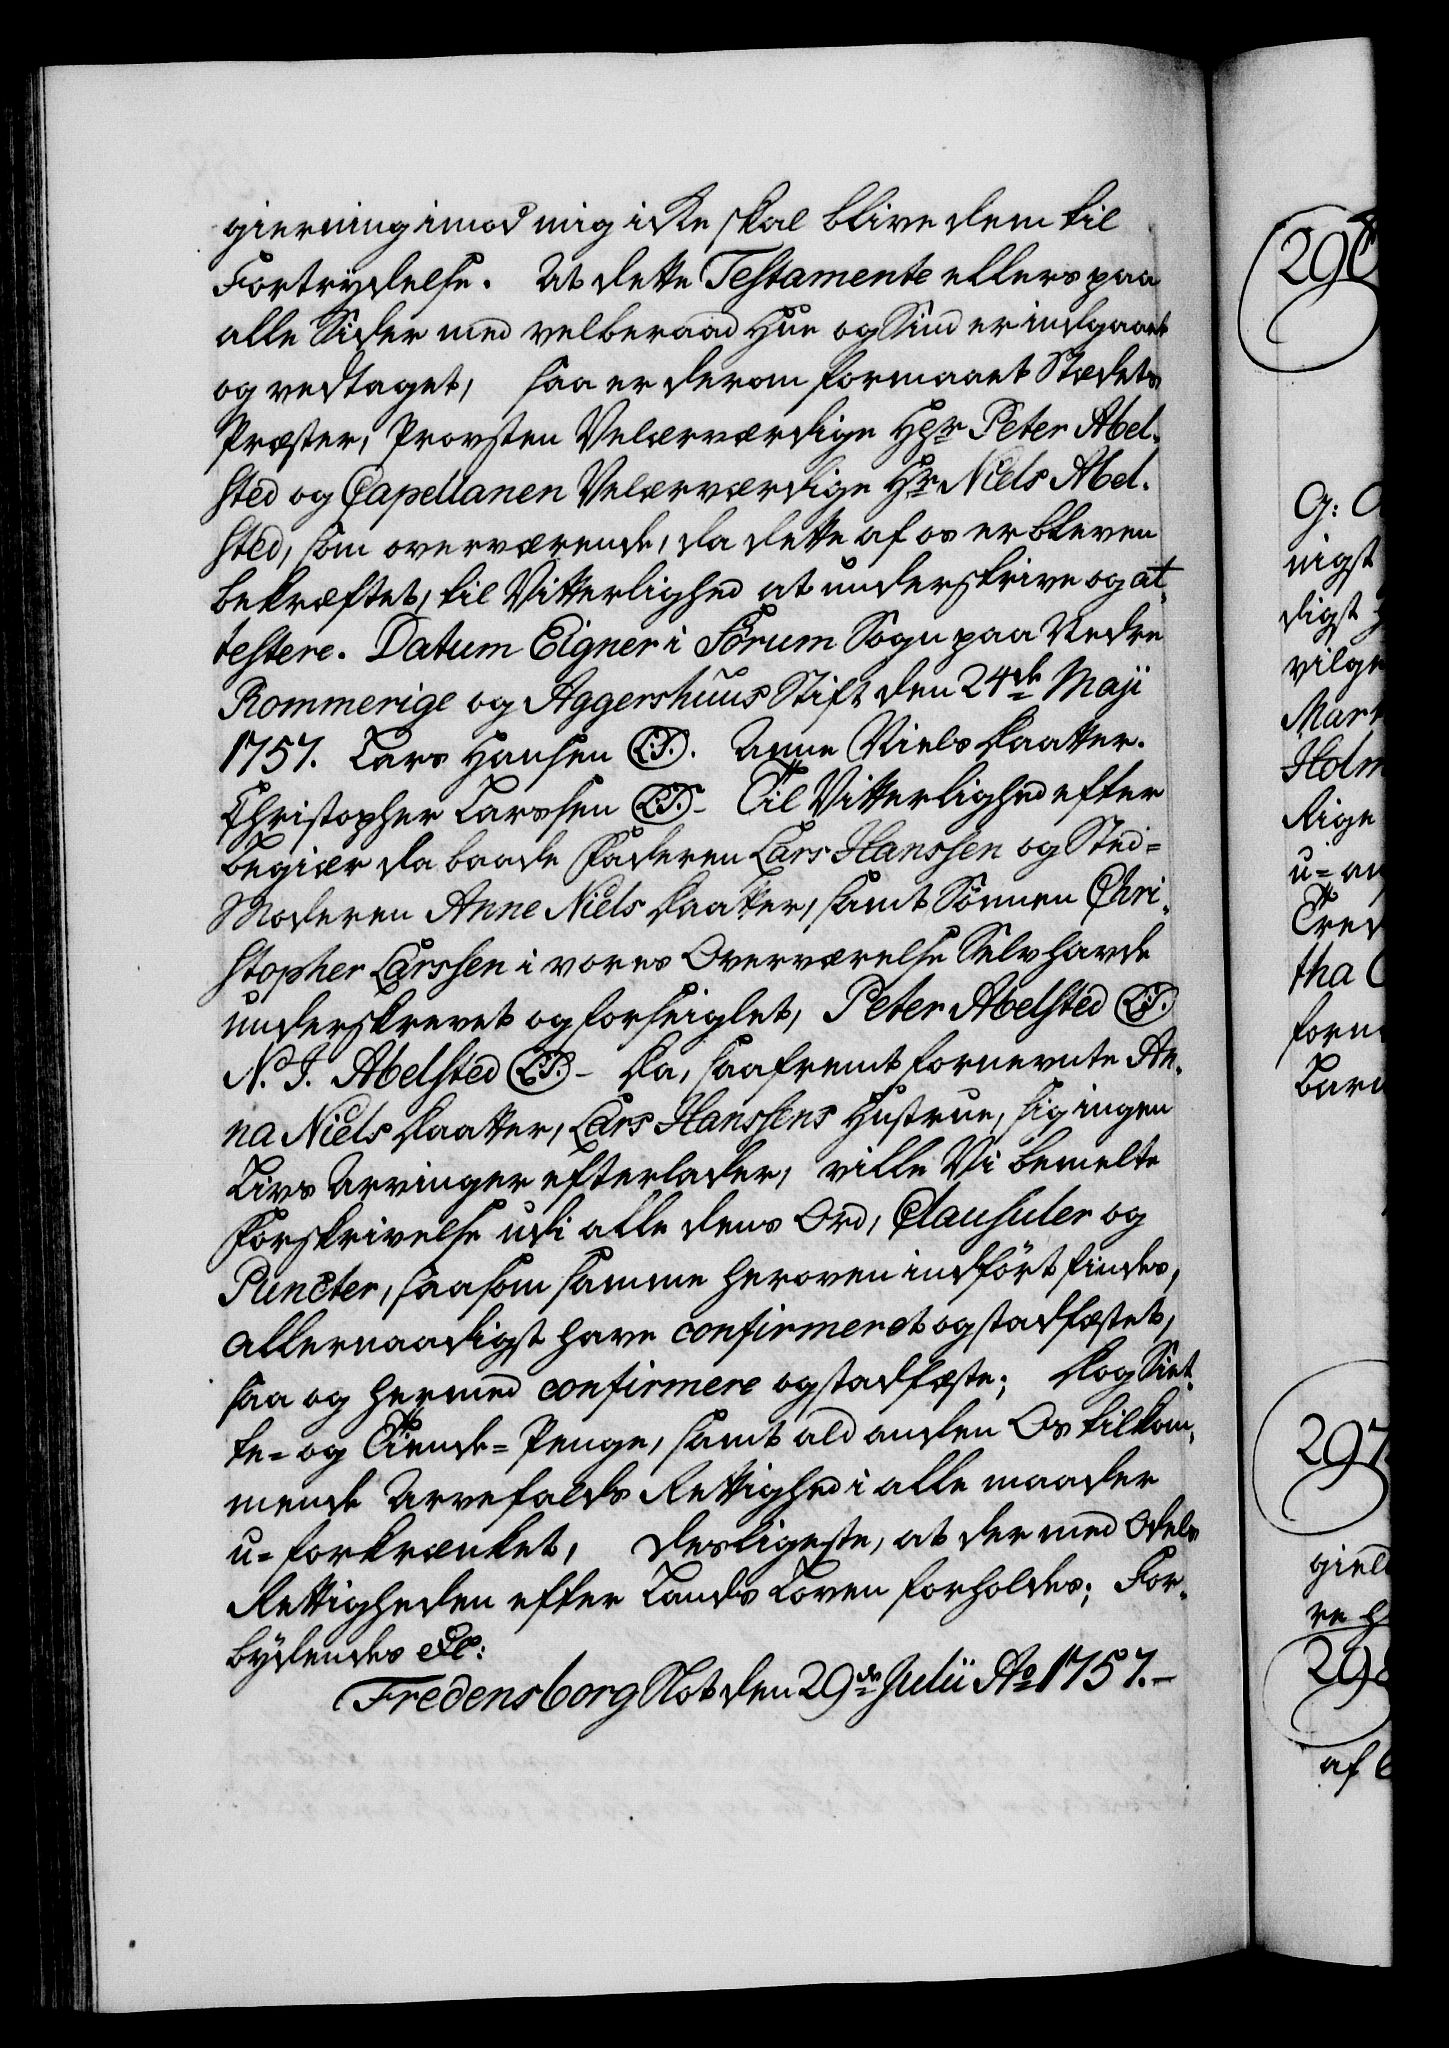 gierning imod mig icke skal blive dem til
Fortrydelse. At dette Testamente ellers paa
alle Sider med velberaad Hue og Sind er indgaaet
og vedtaget, saa er derom formaaet Stædets
Præster, Provsten Velærværdige Hr Peter Abel-
sted og Capellanen Velærværdige Hr Niels Abel-
sted, som overværende, da dette af os er bleven
bekræftet, til Vitterlighed at underskrive og at-
testere. Datum Eigner i Forum Sogn paa Nedre
Rommerige og Aggershuus Stift den 24de Maji
1757. Lars Hansen (L.S.). Anne Niels Daatter.
Christopher Larssen (L.S.) - Til Vitterlighed efter
Begiær da baade Faderen Lars Hanssen og Sted=
Moderen Anne Niels Daatter, samt Sönnen Chri-
stopher Larssen i vores Overværelse Selv havde
underskrevet og forseiglet, Peter Abelsted (L.S.)
N. J. Abelsted (L.S.) - Da, saafremt fornevnte An-
na Niels Daatter, Lars Hanssens Hustrue, sig ingen
Livs Arvinger efterlader, ville Vi bemelte
Forskrivelse udi alle dens Ord, Clausuler og
Puncter, saasom samme heroven indfört findes,
allernaadigst have confirmeret og stadfæstet,
saa og hermed confirmere og stadfæste; Dog Siet-
te= og Tiende=Penge, samt ald anden Os tilkom-
mende Arvefalds Rettighed i alle maader
u=forkrænket, desligeste, at der med Odels
Rettigheden efter Lands Loven forholdes; For-
bydendes etc:
Fredensborg Slot den 29de Julii Ao 1757. -
G:
nigst
digst
Holm
Rige
u=
tha
297
298
af